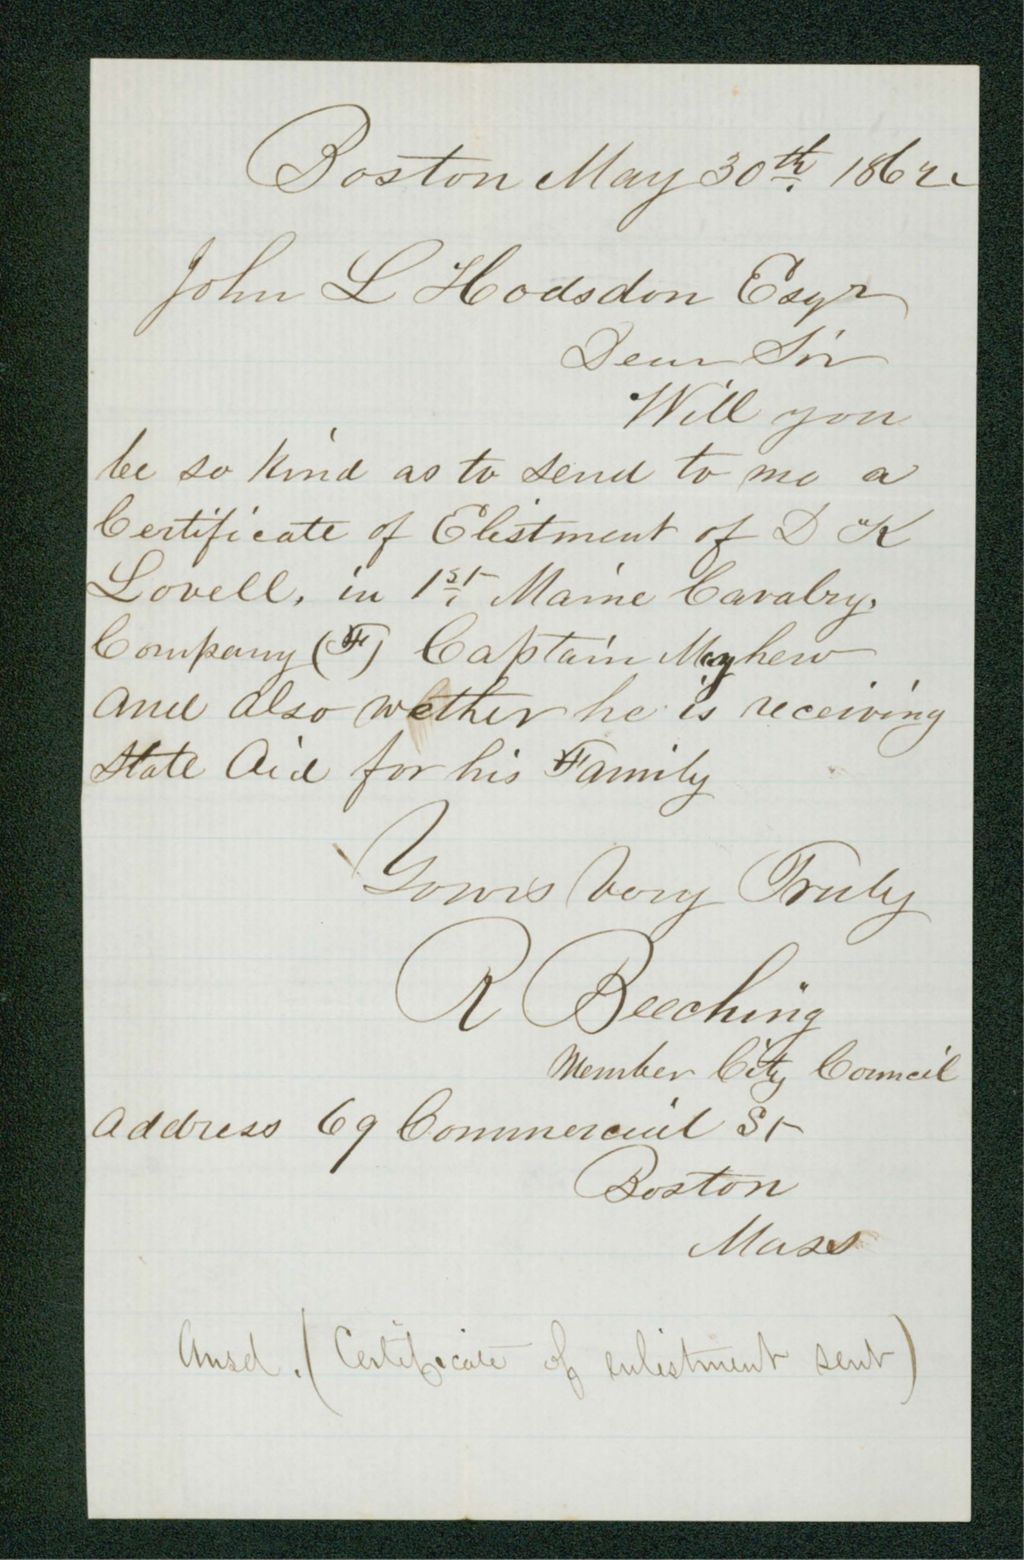 Boston May 30th 1862.
John L Hodsdon Esqr
Dear Sir
Will you
be so kind as to send to me a
Certificate of Elistment of D K
Lovell, in 1st Maine Cavalry,
Company (F) Captain Mayhew
and also wether he is receiving
State Aid for his Family
Yours Very Truly
R Beeching
Member City Council
Address 69 Commercial St
Boston
Mass
Ansd. (Certificate of enlistment sent)